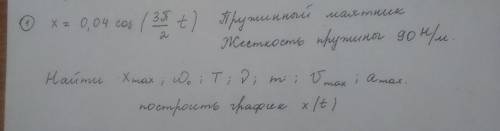 ① x = 0,04 cos (3π/2 t) Пружинный маятник
Жесткость пружины 90 Н/м.
Найти xmax; ω₀; T; ν; m; υmax; amax.
построить график x(t)